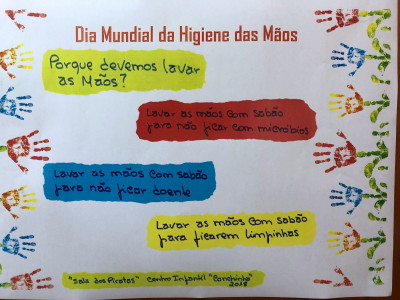 Dia Mundial da Higiene das Mãos
Porque devemos lavar
as Mãos?
Lavar as mãos com sabão
para não ficar com micróbios
Lavar as mãos com sabão
para não ficar doente
Lavar as mãos com sabão
para ficarem limpinhas
"Sala dos Piratas" Centro Infantil "Conchinha"
2018